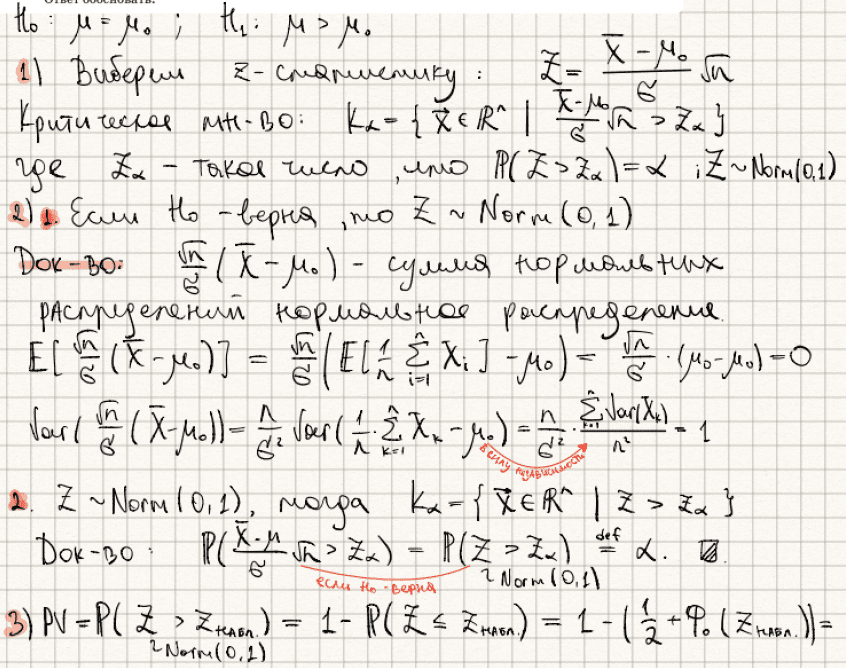 Ответ обосновать.
H₀: μ = μ₀ ; H₁: μ > μ₀
1) Выберем z-статистику: Z = (X̄ - μ₀)/σ √n
Критическое мн-во: K_α = { X⃗ ∈ ℝⁿ | (X̄ - μ₀)/σ √n > Z_α }
где Z_α - такое число, что ℙ(Z > Z_α) = α ; Z ~ Norm(0,1)
2) 1. Если H₀ - верна, то Z ~ Norm(0,1)
Док-во: √n/σ (X̄ - μ₀) - сумма нормальных
распределений нормальное распределение.
E[√n/σ (X̄ - μ₀)] = √n/σ (E[1/n ∑ᵢ₌₁ⁿ Xᵢ] - μ₀) = √n/σ · (μ₀ - μ₀) = 0
Var(√n/σ (X̄ - μ₀)) = n/σ² Var(1/n · ∑ₖ₌₁ⁿ Xₖ - μ₀) = n/σ² · ∑ₖ₌₁ⁿ Var(Xₖ)/n² = 1
в силу независимости
2. Z ~ Norm(0,1), тогда K_α = { X⃗ ∈ ℝⁿ | Z > Z_α }
Док-во: ℙ((X̄ - μ)/σ √n > Z_α) = ℙ(Z > Z_α) def= α.
если H₀ - верна
~ Norm(0,1)
3) PV = ℙ(Z > Z набл.) = 1 - ℙ(Z ≤ Z набл.) = 1 - (1/2 + Φ₀(Z набл.)) =
~ Norm(0,1)